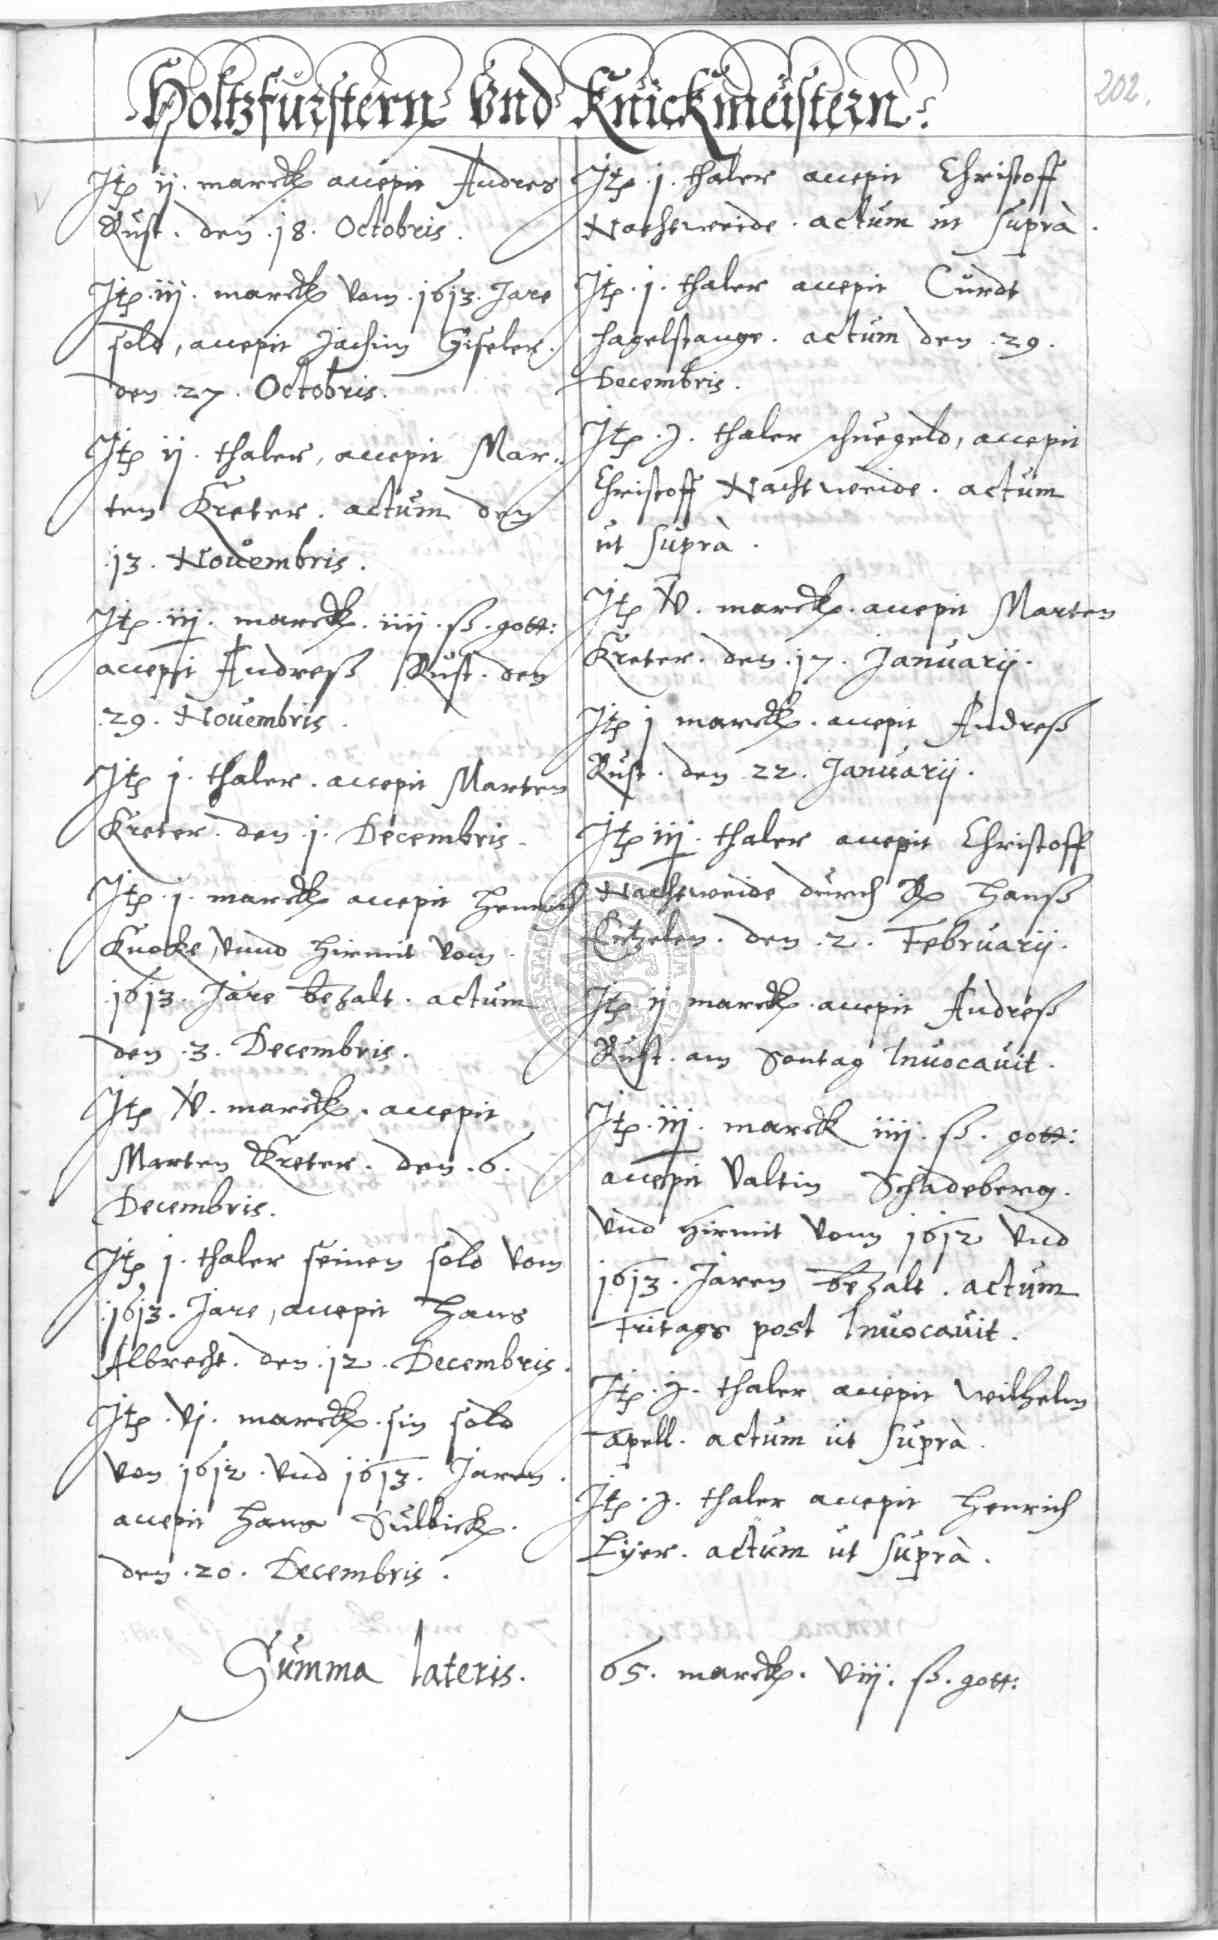 Holtzfurstern Vnd Knickmeistern
202.
Itp ij. marck accepit Andres
Rust. den .18. Octobris.
Itp. iij. marck vom .1613. Jare
sold, accepit Jachim Giseler.
den .27. Octobris.
Itp ij. thaler, accepit Mar:
ten Kreter. actum den
.13. Nouembris.
Itp. iij. marck. iiij. ß. gott:
accepit Andreß Rust. den
.29. Nouembris.
Itp j. thaler. accepit Marten
Kreter. den .j. Decembris.
Itp. j. marck accepit Henrich
Knoke, vnnd hirmit vom
.1613. Jare bezalt. actum
den .3. Decembris.
Itp . marck. accepit
Marten Kreter. den .6.
Decembris.
Itp j. thaler seinen sold vom
.1613. Jare, accepit Hans
Albrecht. den .12. Decembris.
Itp. vj. marck. sin sold
von 1612. vnd 1613. Jaren.
accepit Hans Sulbick.
den .20. Decembris.
Itp. j. thaler accepit Christoff
Nachtweide. actum ut suprà.
Itp. j. thaler accepit Curdt
Hagelstange. actum den .29.
Decembris.
Itp. . thaler schuegeld, accepit
Christoff Nachtweide. actum
ut suprà.
Itp . marck. accepit Marten
Kreter. den .17. Januarij.
Itp j marck. accepit Andreß
Rust. den .22. Januarij.
Itp iij. thaler accepit Christoff
Nachtweide durch Hanß
den .2. Februarij.
Itp ij marck. accepit Andreß
Rust. am Sontag Inuocauit.
Itp. iij. marck iiij. ß. gott:
accepit Valtin Schadeberg.
vnd hirmit vom 1612 vnd
1613. Jaren bezalt. actum
Fritags post Inuocauit.
Itp. . thaler accepit Wilhelm
Apell. actum ut suprà.
Itp. . thaler accepit Henrich
Lÿer. actum ut suprà.
Summa lateris. 65. marck. viij. ß. gott: